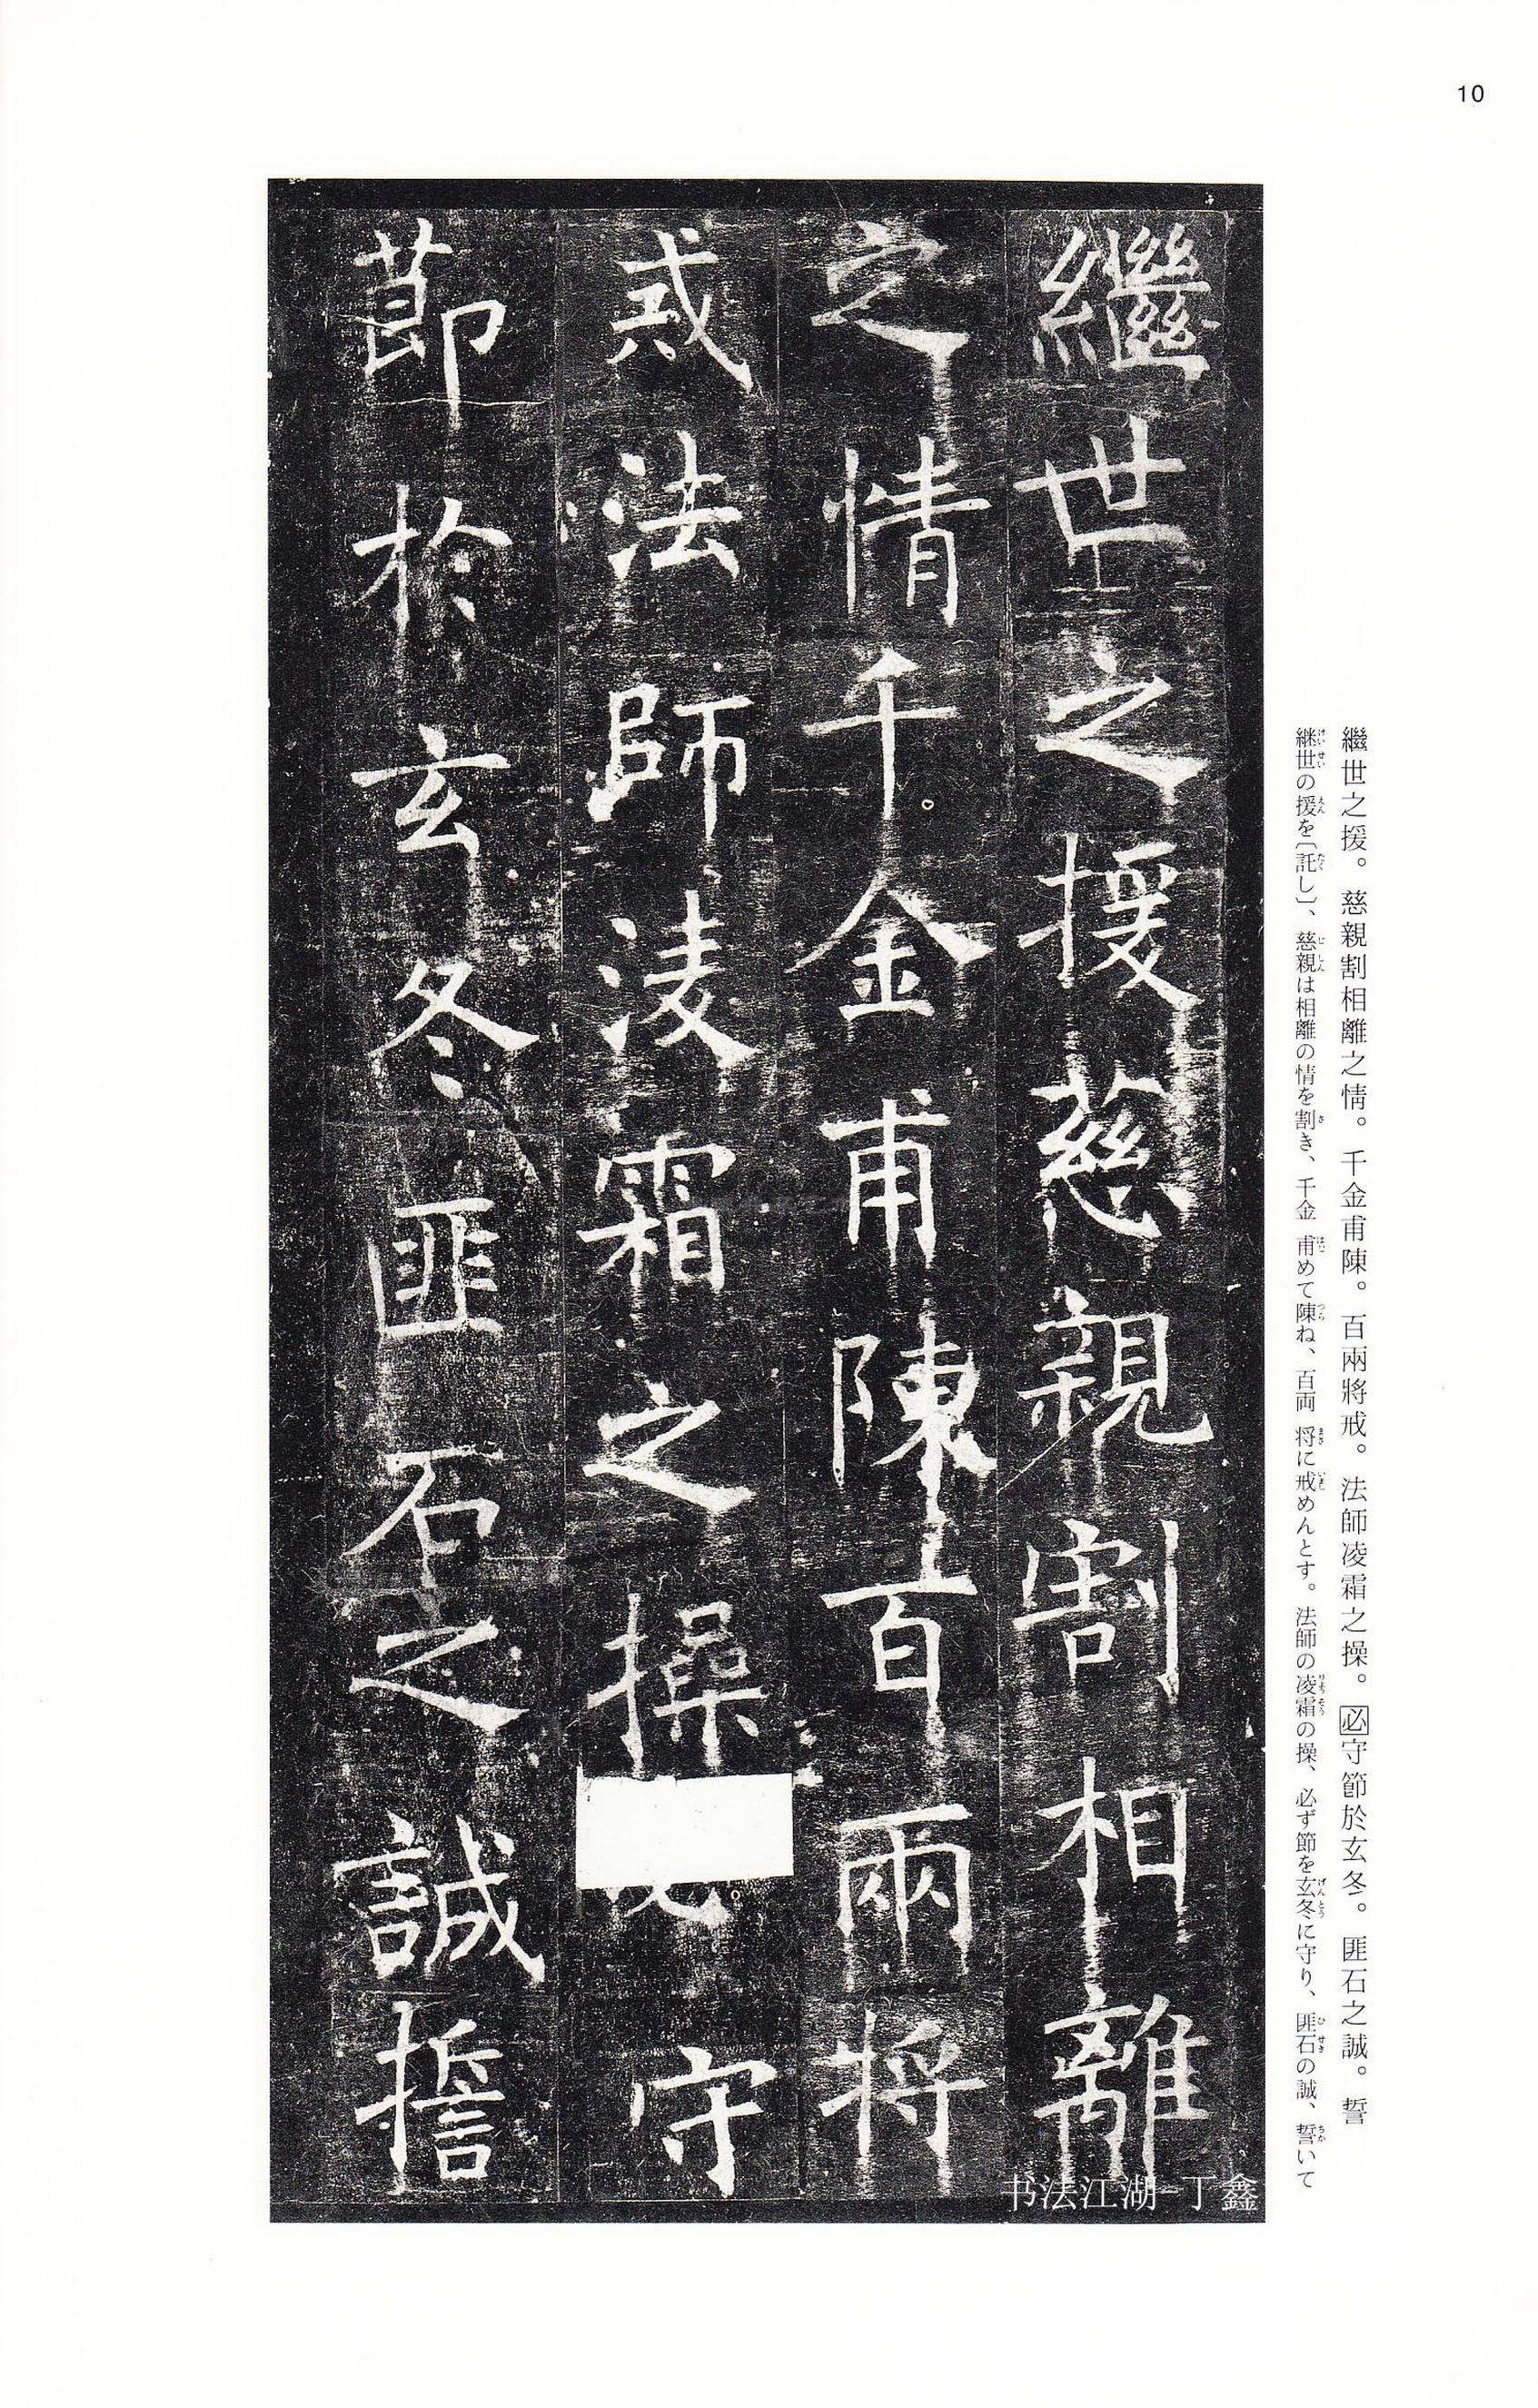 10
繼世之援。慈親割相離之情。千金甫陳。百兩將戒。法師凌霜之操。必守節於玄冬。匪石之誠。誓
継世の援を〔託し〕、慈親は相離の情を割き、千金 甫めて陳ね、百両 将に戒めんとす。法師の凌霜の操、必ず節を玄冬に守り、匪石の誠、誓いて
繼世之援慈親割相離
之情千金甫陳百兩将
戒法師凌霜之操守
節於玄冬匪石之誠誓
书法江湖-丁鑫